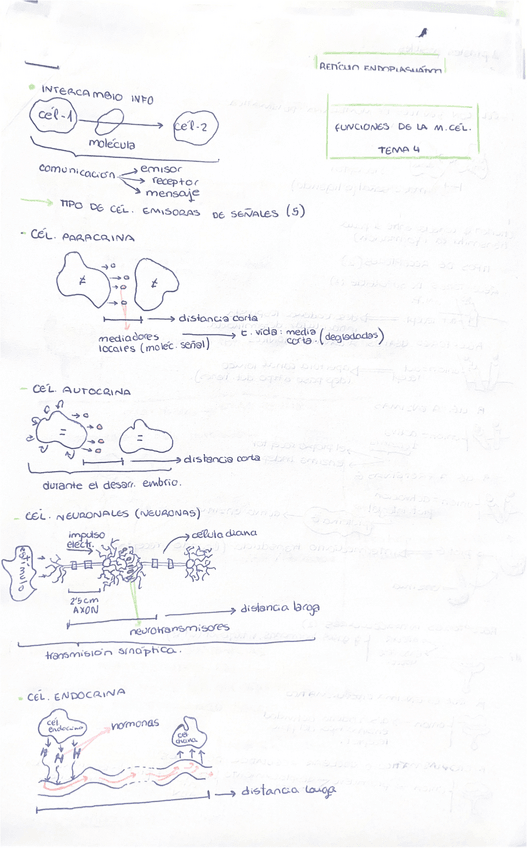 RETÍCULO ENDOPLASMÁTICO
FUNCIONES DE LA M.CÉL.
TEMA 4
INTERCAMBIO INFO
cél-1
cél-2
molécula
comunicación
emisor
receptor
mensaje
TIPO DE CÉL. EMISORAS DE SEÑALES (5)
- CÉL. PARACRINA
≠ ≠
distancia corta
mediadores
locales (moléc. señal)
t. vida: media
corta. (degladadas)
- CÉL. AUTOCRINA
= =
distancia corta
durante el desarr. embrio.
- CÉL. NEURONALES (NEURONAS)
estímulo
impulso
electr.
célula diana
2'5 cm
AXON
distancia larga
neurotransmisores
transmisión sináptica.
- CÉL. ENDOCRINA
cél
endocrina
hormonas
cél
diana
H H H
distancia larga